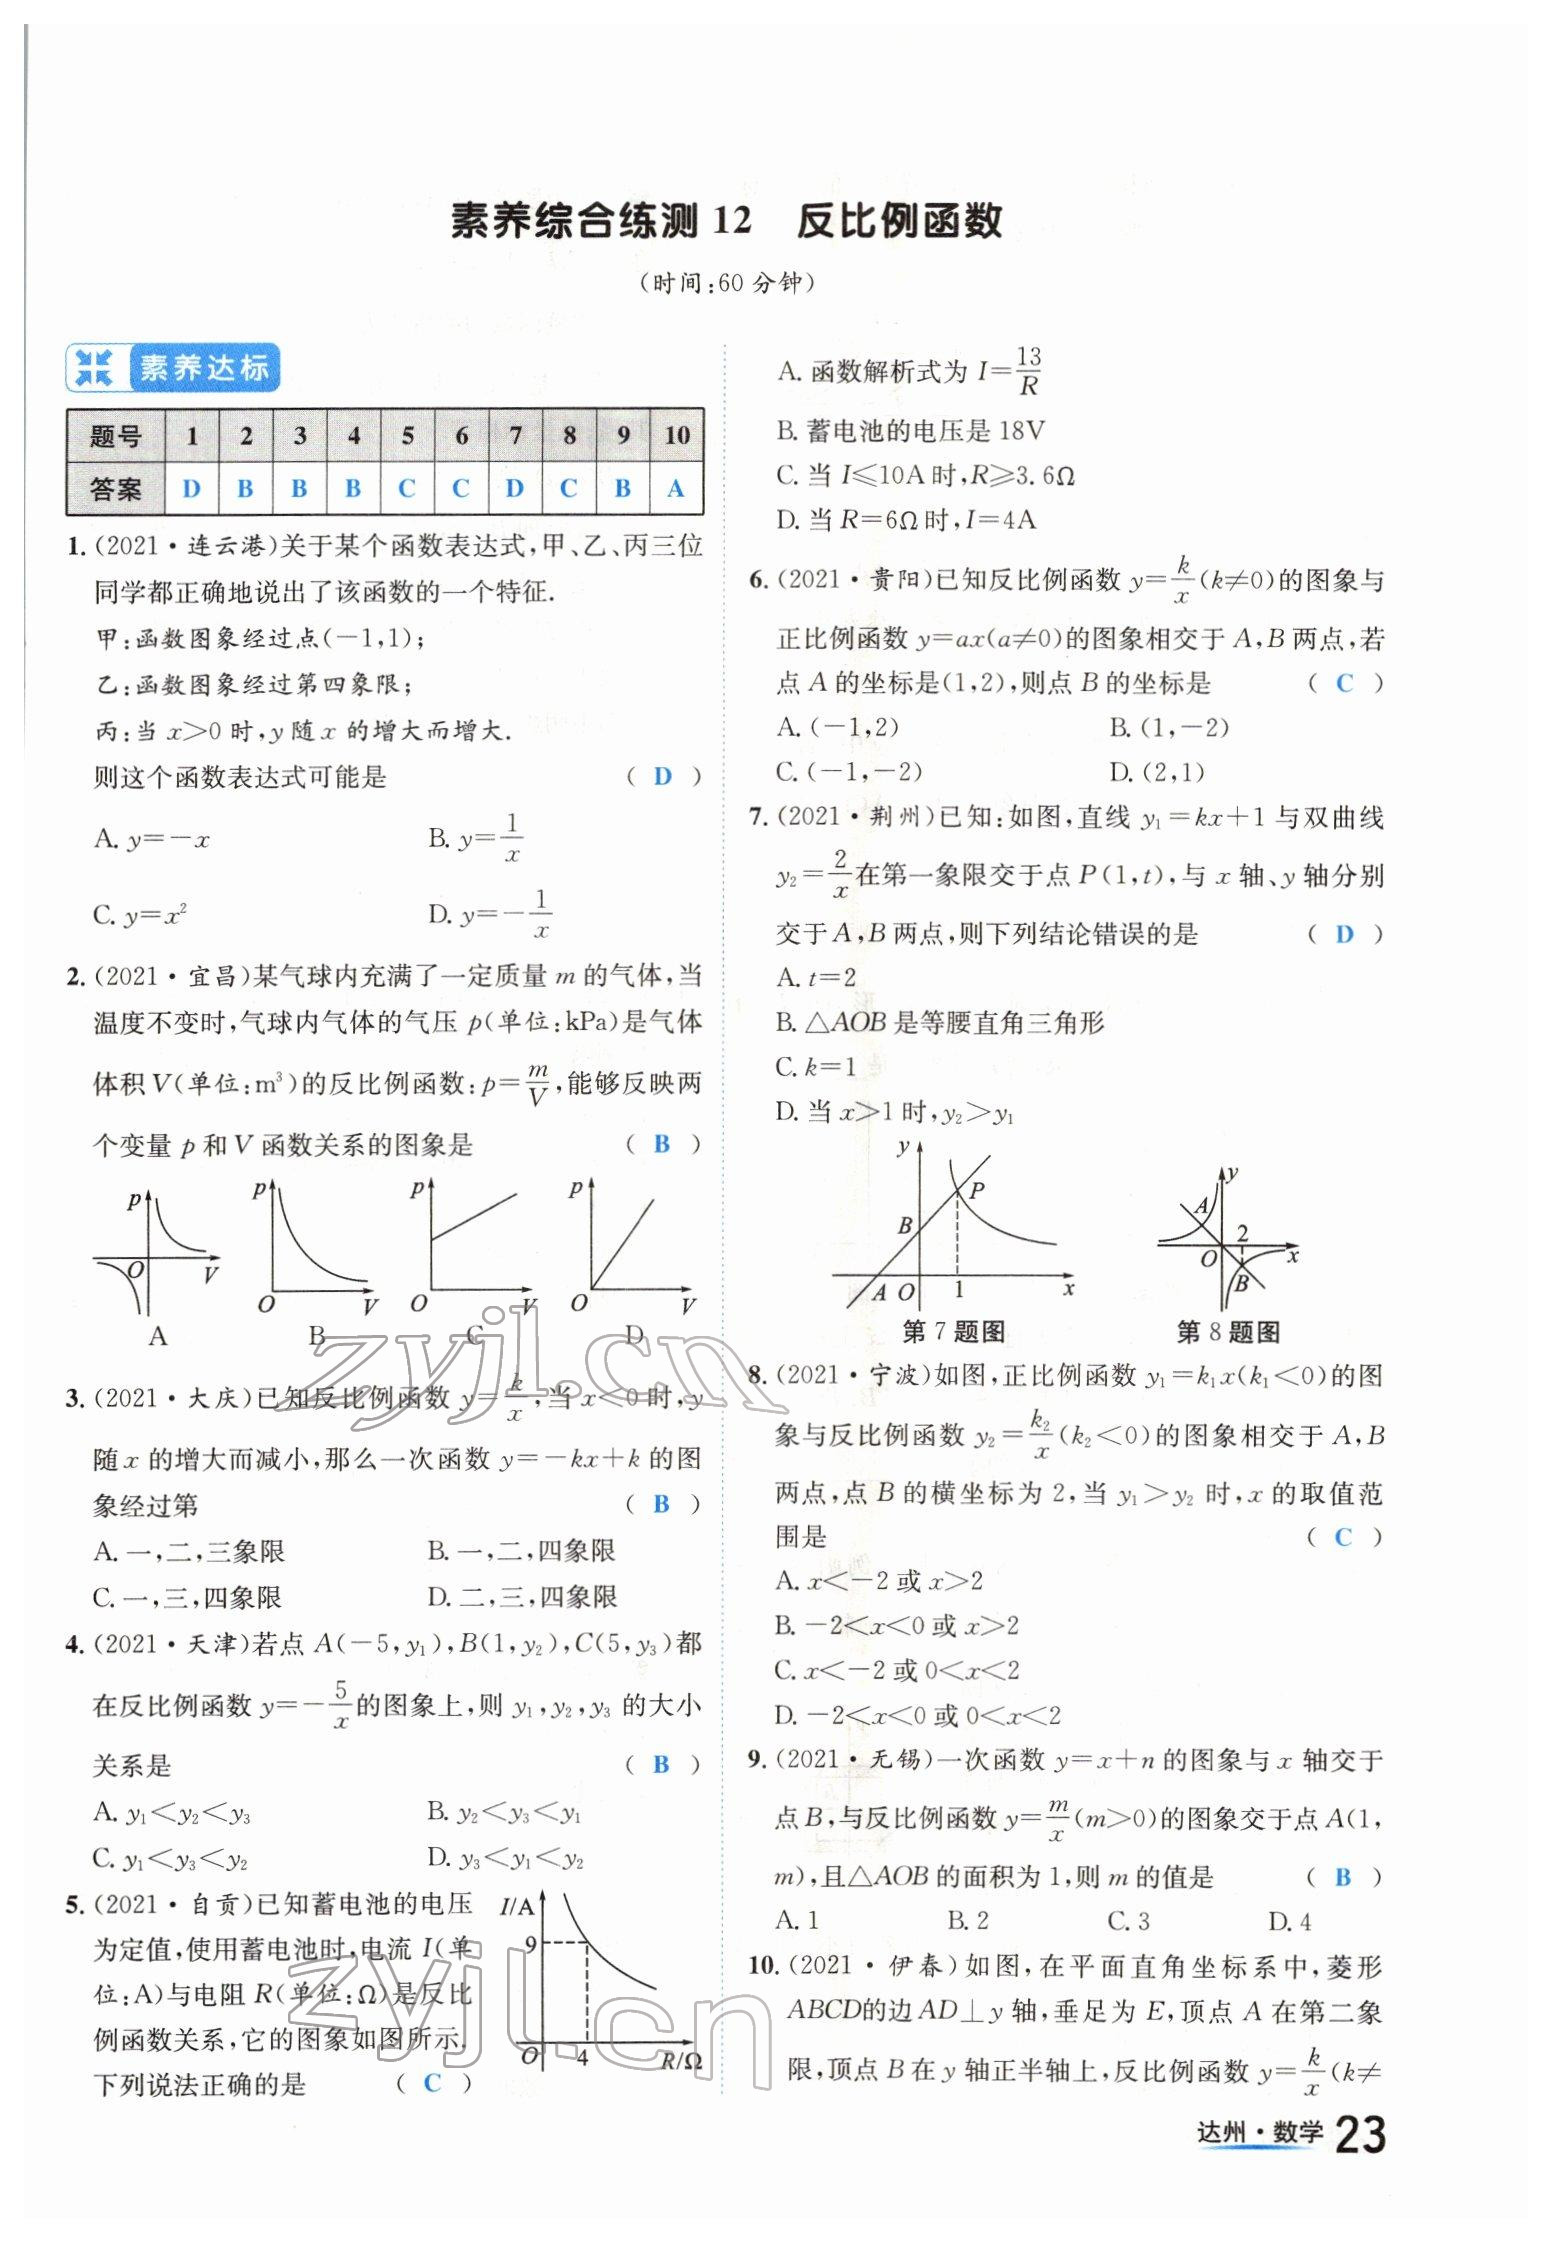 素养综合练测 12 反比例函数
(时间:60 分钟)
素养达标
题号 1 2 3 4 5 6 7 8 9 10
答案 D B B B C C D C B A
1. (2021·连云港)关于某个函数表达式,甲、乙、丙三位
同学都正确地说出了该函数的一个特征.
甲:函数图象经过点(-1,1);
乙:函数图象经过第四象限;
丙:当 x>0 时,y 随 x 的增大而增大.
则这个函数表达式可能是 ( D )
A. y=-x B. y=1/x
C. y=x² D. y=-1/x
2. (2021·宜昌)某气球内充满了一定质量 m 的气体,当
温度不变时,气球内气体的气压 p(单位:kPa)是气体
体积 V(单位:m³)的反比例函数:p=m/V,能够反映两
个变量 p 和 V 函数关系的图象是 ( B )
p O V p O V p O V p O V
A B C D
3. (2021·大庆)已知反比例函数 y=k/x,当 x<0 时,y
随 x 的增大而减小,那么一次函数 y=-kx+k 的图
象经过第 ( B )
A. 一,二,三象限 B. 一,二,四象限
C. 一,三,四象限 D. 二,三,四象限
4. (2021·天津)若点 A(-5,y₁),B(1,y₂),C(5,y₃)都
在反比例函数 y=-5/x的图象上,则 y₁,y₂,y₃ 的大小
关系是 ( B )
A. y₁<y₂<y₃ B. y₂<y₃<y₁
C. y₁<y₃<y₂ D. y₃<y₁<y₂
5. (2021·自贡)已知蓄电池的电压
为定值,使用蓄电池时,电流 I(单
位:A)与电阻 R(单位:Ω)是反比
例函数关系,它的图象如图所示.
下列说法正确的是 ( C )
I/A
9
O 4 R/Ω
A. 函数解析式为 I=13/R
B. 蓄电池的电压是 18V
C. 当 I≤10A 时,R≥3.6Ω
D. 当 R=6Ω 时,I=4A
6. (2021·贵阳)已知反比例函数 y=k/x(k≠0)的图象与
正比例函数 y=ax(a≠0)的图象相交于 A,B 两点,若
点 A 的坐标是(1,2),则点 B 的坐标是 ( C )
A. (-1,2) B. (1,-2)
C. (-1,-2) D. (2,1)
7. (2021·荆州)已知:如图,直线 y₁=kx+1 与双曲线
y₂=2/x在第一象限交于点 P(1,t),与 x 轴、y 轴分别
交于 A,B 两点,则下列结论错误的是 ( D )
A. t=2
B. △AOB 是等腰直角三角形
C. k=1
D. 当 x>1 时,y₂>y₁
y P B A O 1 x
第 7 题图
y A 2 O x B
第 8 题图
8. (2021·宁波)如图,正比例函数 y₁=k₁x(k₁<0)的图
象与反比例函数 y₂=k₂/x(k₂<0)的图象相交于 A,B
两点,点 B 的横坐标为 2,当 y₁>y₂ 时,x 的取值范
围是 ( C )
A. x<-2 或 x>2
B. -2<x<0 或 x>2
C. x<-2 或 0<x<2
D. -2<x<0 或 0<x<2
9. (2021·无锡)一次函数 y=x+n 的图象与 x 轴交于
点 B,与反比例函数 y=m/x(m>0)的图象交于点 A(1,
m),且△AOB 的面积为 1,则 m 的值是 ( B )
A. 1 B. 2 C. 3 D. 4
10. (2021·伊春)如图,在平面直角坐标系中,菱形
ABCD的边 AD⊥y 轴,垂足为 E,顶点 A 在第二象
限,顶点 B 在 y 轴正半轴上,反比例函数 y=k/x(k≠
达州·数学 23
zyjl.cn
zyjl.cn